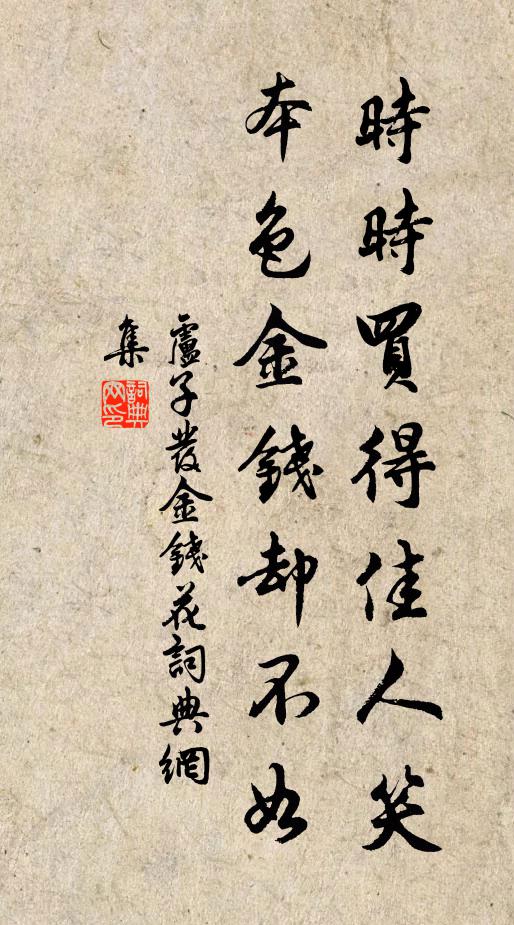 時時買得佳人笑
本色金錢却不如
盧子發金錢花詞典網
集
詞典
网印